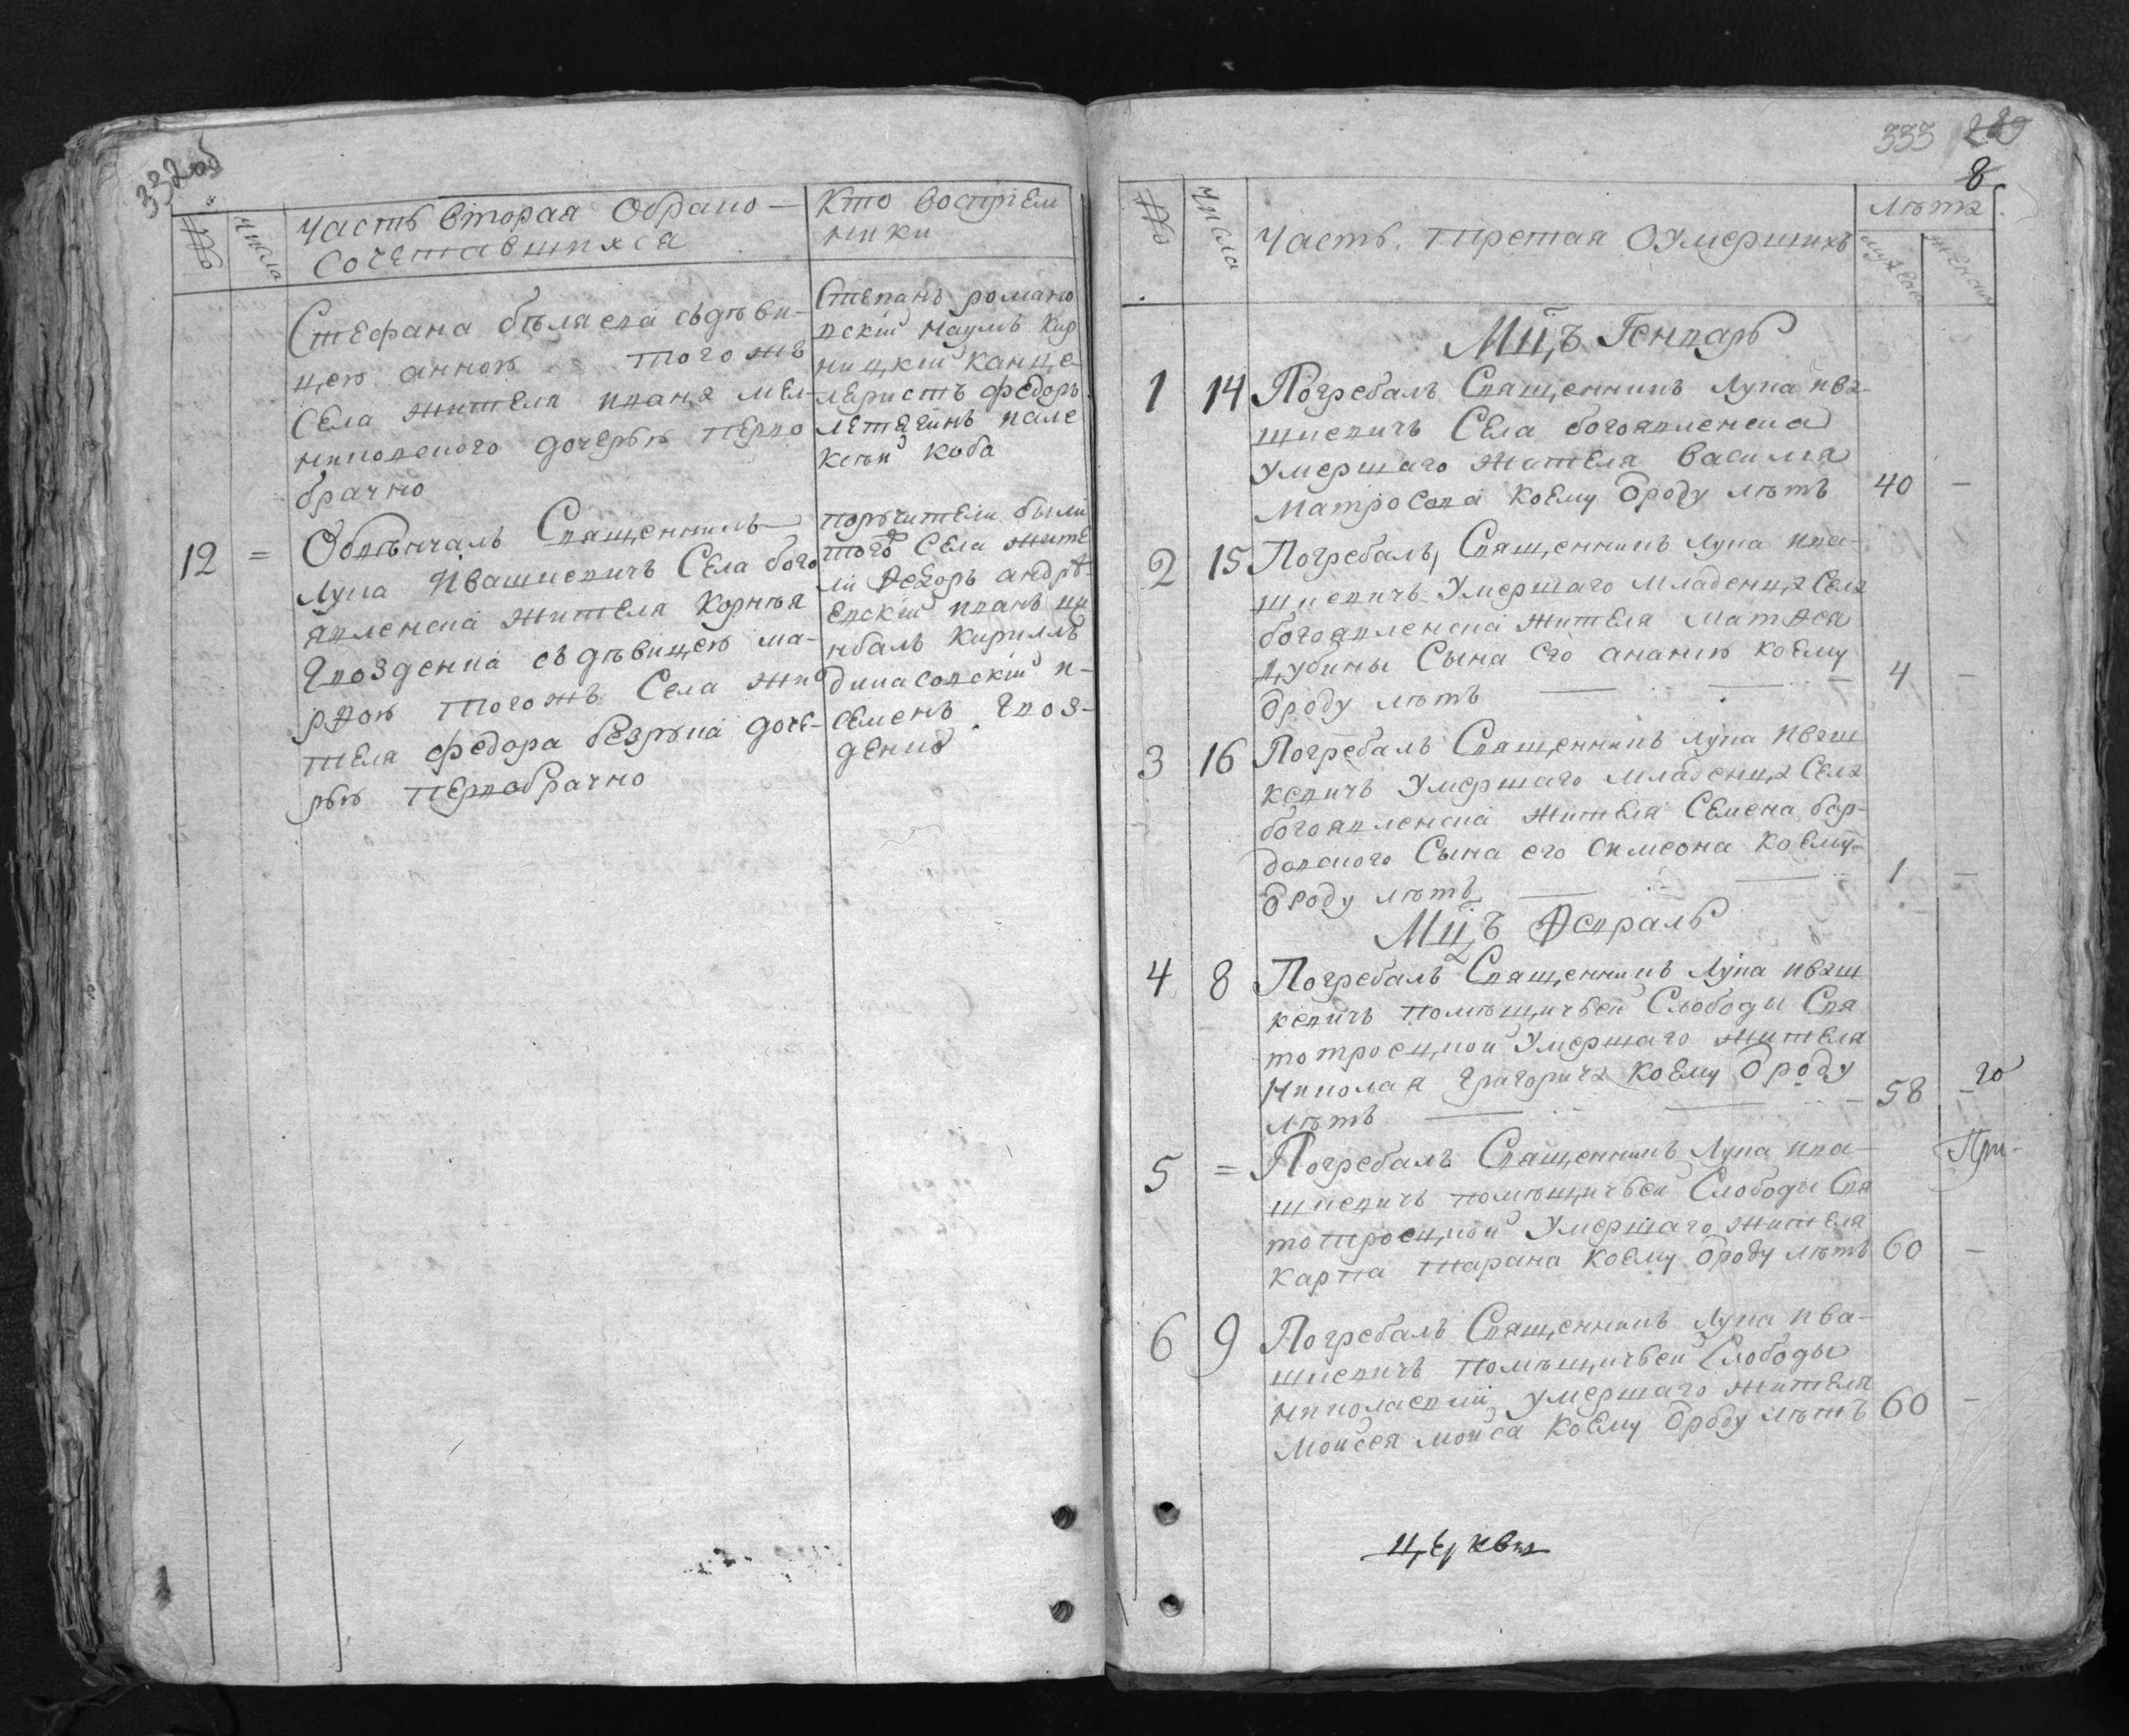 332 об
№
Числа
Часть вторая Обрако-
сочетавшихся
Кто воспрiем
ники
Стефана беляева съдѣви-
цею анною тогожъ
Села жителя ивана мел-
никовского дочерью перво
брачно
Степанъ романо
вскiй наумъ
ницкiй канце
ляристъ федоръ
кобa
12 =
Обвѣнчалъ Священникъ
Лупа Ивашкевичъ Села бого
явленска жителя корнѣя
Гвозденка съдѣвицею ма-
рѳою тогожъ Села жи
теля федора безрука доче-
рью первобрачно
поручители были
того Села жите
ли Ѳедоръ андрѣ-
евскiй иванъ ци
нбалъ кириллъ
дикасовскiй и-
семенъ Гвоз-
денко
333 289
8
№
Числа
Часть третая Оумершихъ
лѣта
мужеска
женска
Мцъ Генварь
1 14 Погребалъ Священникъ Лупа ива-
шкевичъ Села богоявленска
умершаго жителя василя
матросова коему ѿроду лѣтъ 40 -
2 15 Погребалъ Священникъ Лупа ива-
шкевичъ умершаго младенца Села
богоявленска жителя матѳея
дубины Сына его ананiю коему
ѿроду лѣтъ 4 -
3 16 Погребалъ Священникъ Лупа иваш
кевичъ умершаго младенца Села
богоявленска жителя Семена бор-
довского Сына его симеона коему
ѿроду лѣтъ 1 -
Мцъ Ѳевраль
4 8 Погребалъ Священникъ Лупа иваш
кевичъ помѣщичьей Слободы Свя
тотроецкой умершаго жителя
николая григорича коему ѿроду
лѣтъ 58 -
го
5 = Погребалъ Священникъ Лупа ива-
шкевичъ помѣщичьей Слободы Свя
тотроецкой умершаго жителя
карпа тарана коему ѿроду лѣтъ 60 -
При-
6 9 Погребалъ Священникъ Лупа ива-
шкевичъ помѣщичьей Слободы
николаевки умершаго жителя
Моисея мойса коему ѿроду лѣтъ 60 -
церквы